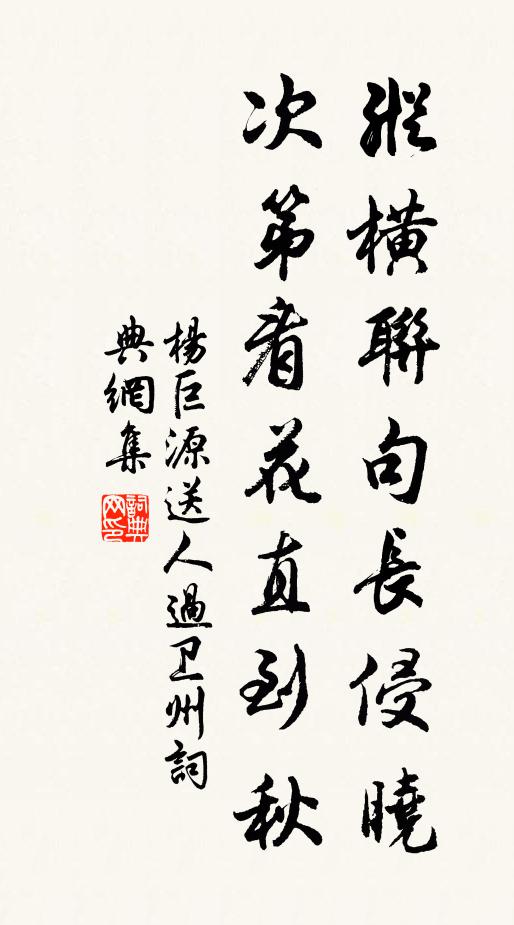 縱橫聯句長侵曉
次第看花直到秋
楊巨源送人過卫州詞
典網集
詞典網印